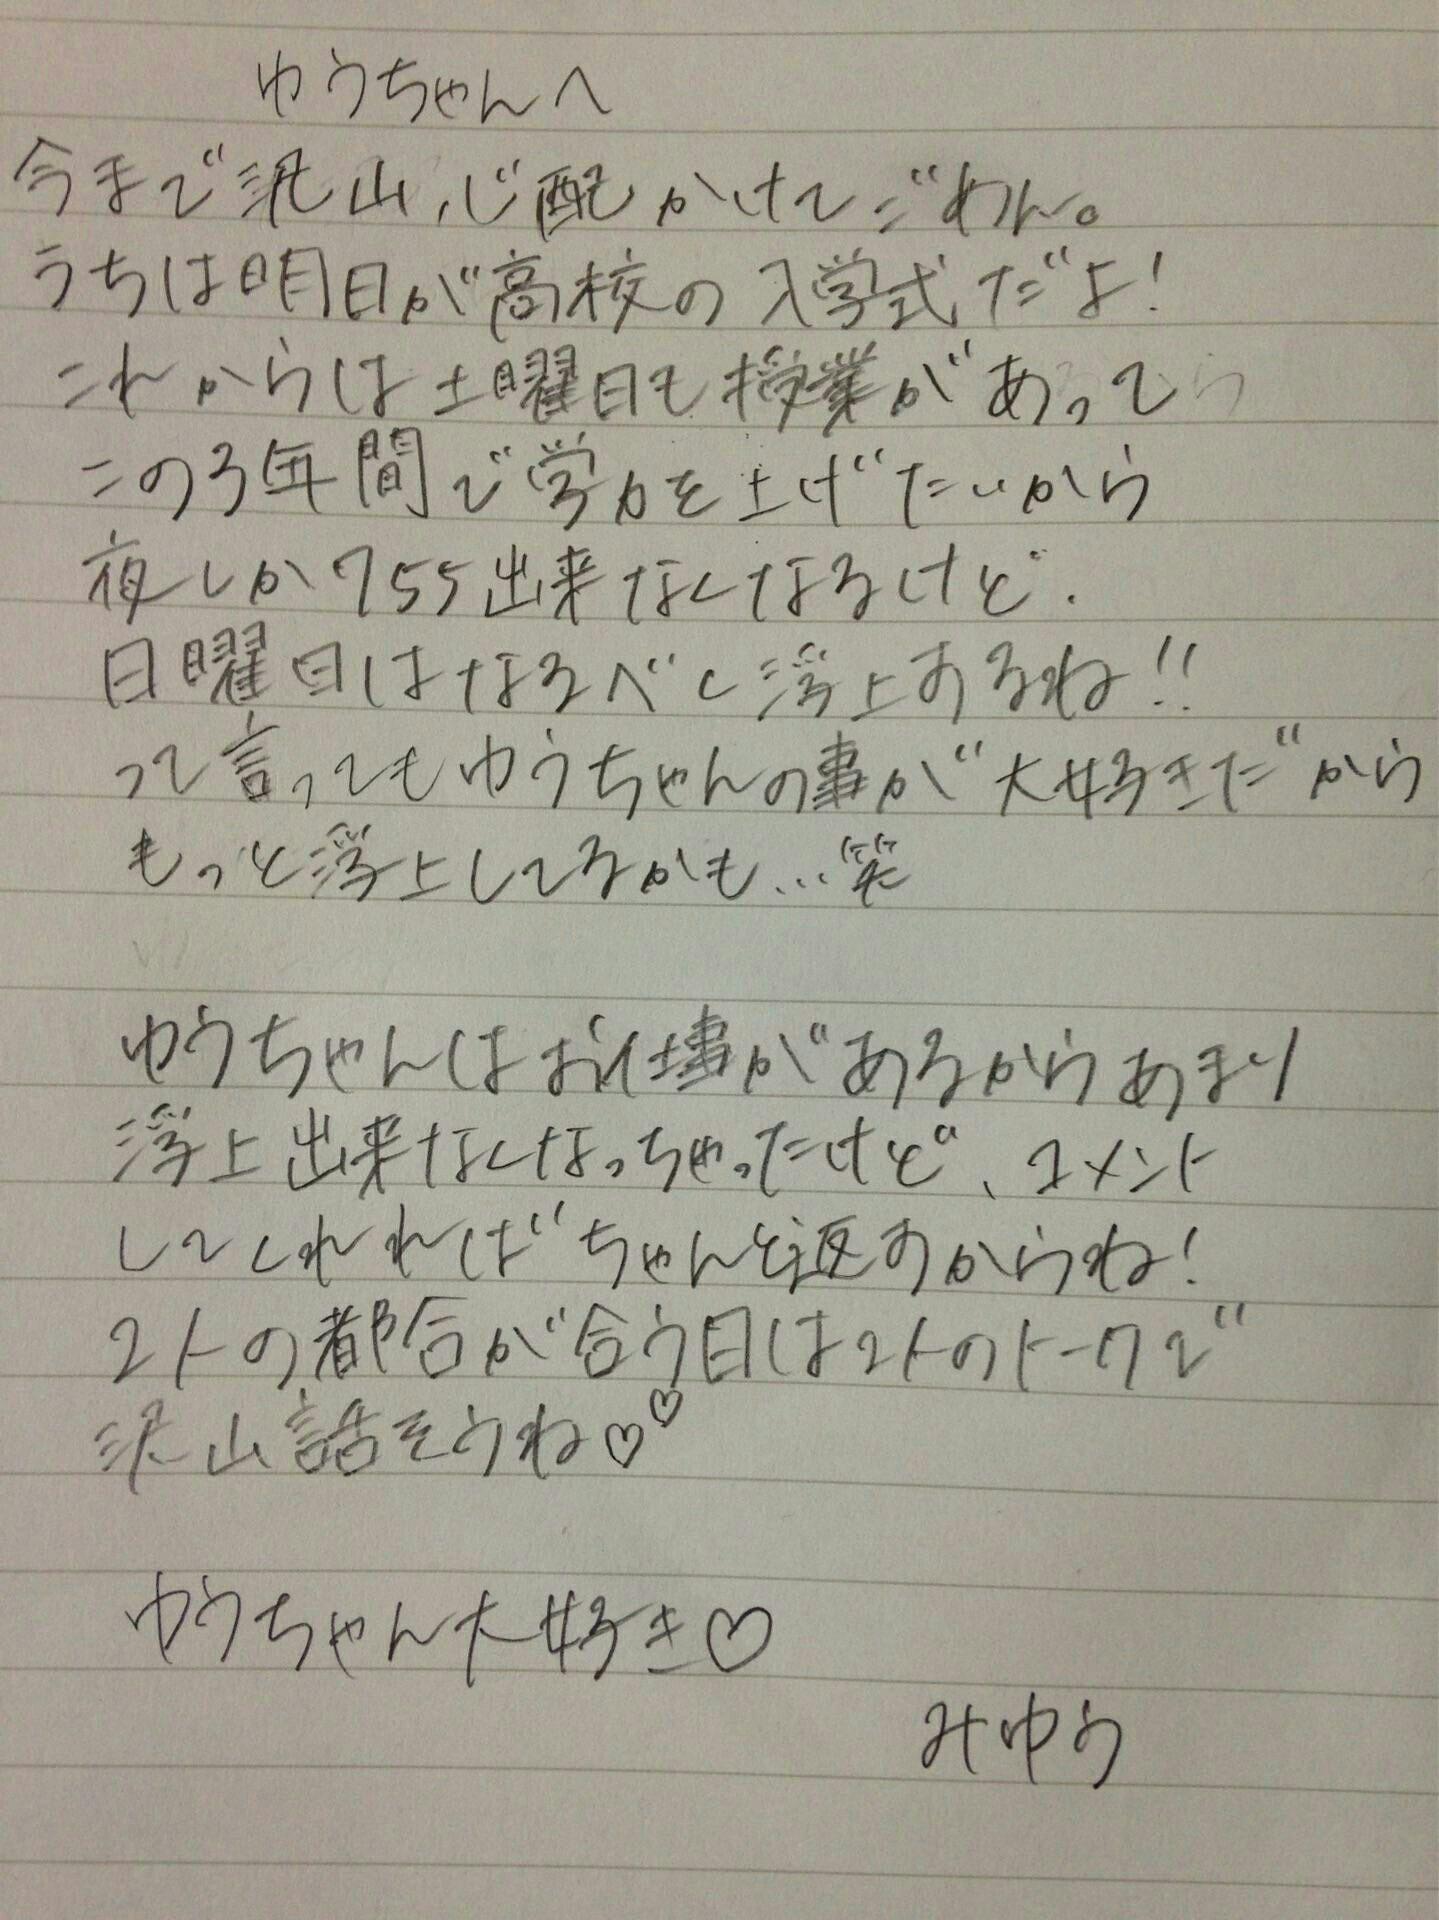 ゆうちゃんへ
今まで沢山心配かけてごめん。
うちは明日が高校の入学式だよ!
これからは土曜日も授業があって
この3年間で学力を上げたいから
夜しか755出来なくなるけど.
日曜日はなるべく浮上するね!!
って言ってもゆうちゃんの事が大好きだから
もっと浮上してるかも...笑
ゆうちゃんはお仕事があるからあまり
浮上出来なくなっちゃったけど、コメント
してくれればちゃんと返すからね!
2人の都合が合う日は2人のトークで
沢山話そうね♡♡
ゆうちゃん大好き♡
みゆう